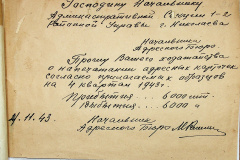 Господину Начальнику
Административной Секции 1-2
Районной Управы г. Николаева
Начальника
Адресного Бюро
Прошу Вашего ходатайства
о напечатании адресных карточек
согласно прилагаемых образцов
на 4 квартал 1943 г.
Прибытия 6000 шт.
Выбытия 6000 "
Начальник
4.11.43. Адресного Бюро